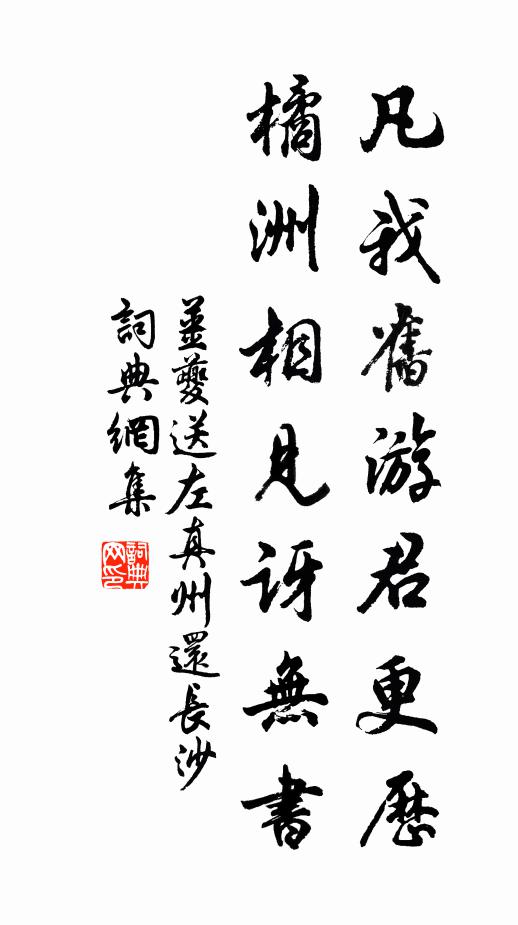 凡我舊游君更歷
橘洲相見訝無書
姜夔送左真州還長沙
詞典網集
詞典网印